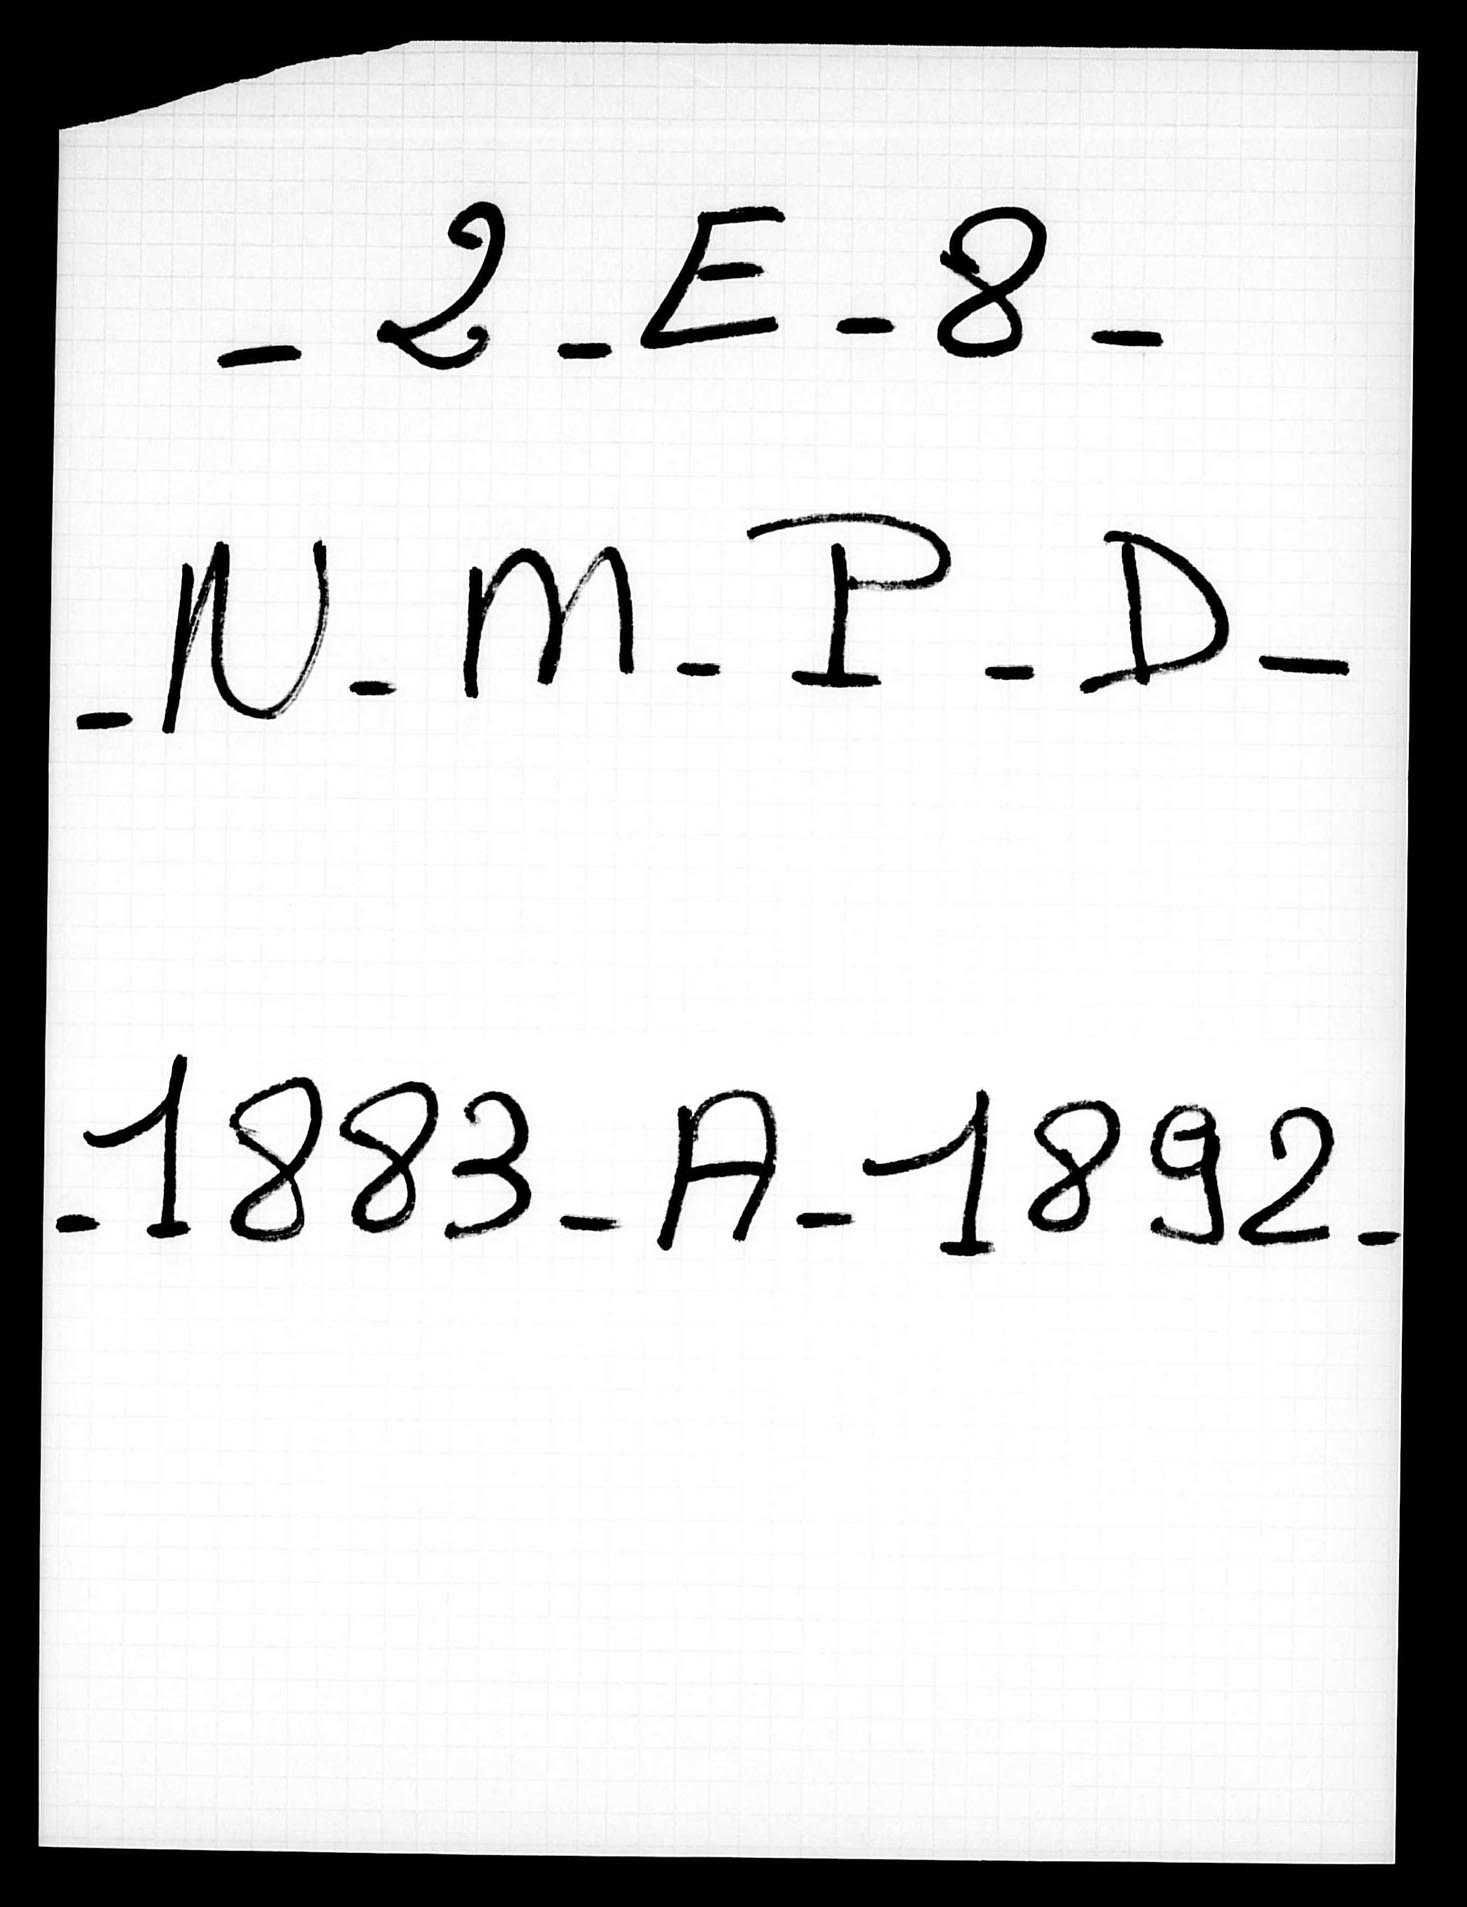 - 2 - E - 8 -
- N - M - P - D -
- 1883 - A - 1892 -